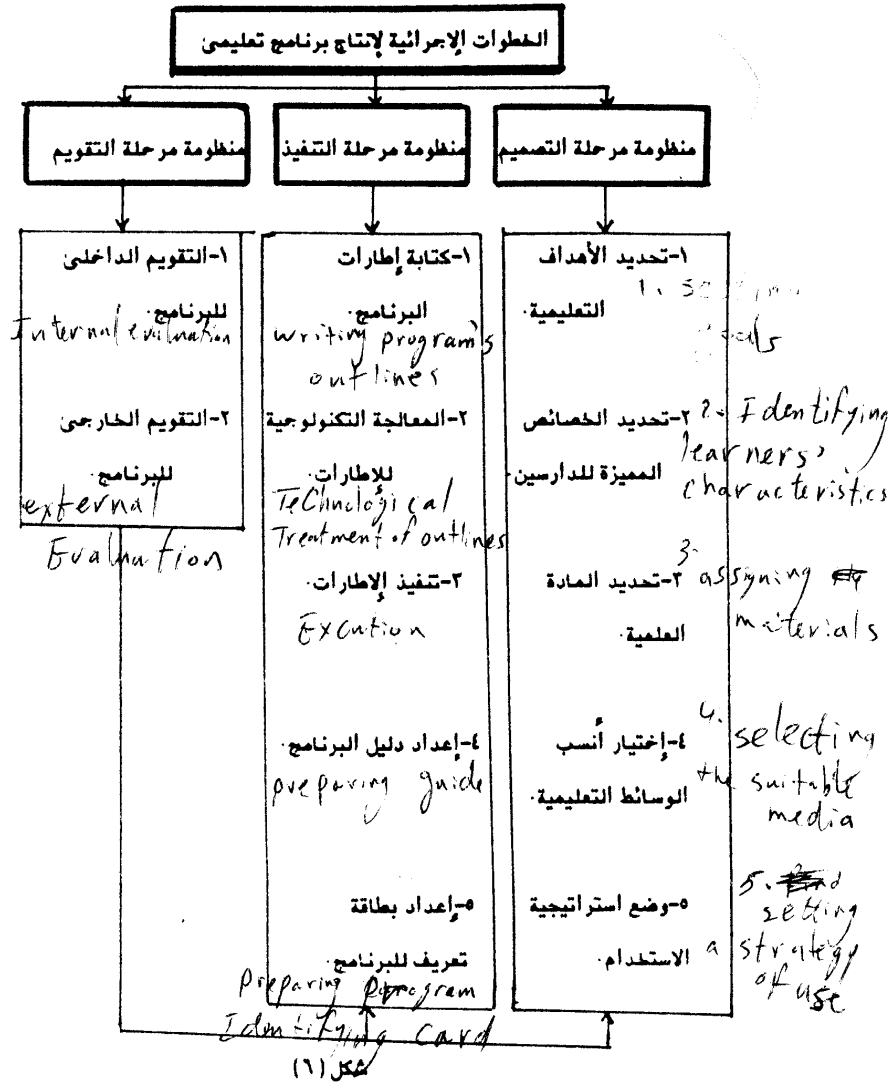 الخطوات الإجرائية لإنتاج برنامج تعليمى
منظومة مرحلة التصميم
منظومة مرحلة التنفيذ
منظومة مرحلة التقويم
١-تحديد الأهداف
التعليمية.
goals
٢-تحديد الخصائص
المميزة للدارسين.
2. Identifying
learners'
characteristics
٣-تحديد المادة
العلمية.
3. assigning
materials
٤-إختيار أنسب
الوسائط التعليمية.
4. selecting
the suitable
media
٥-وضع استراتيجية
الاستخدام.
5.
setting
a strategy
of use
١-كتابة إطارات
البرنامج.
writing program's
outlines
٢-المعالجة التكنولوجية
للإطارات.
TeChnological
Treatment of outlines
٣-تنفيذ الإطارات.
Excution
٤-إعداد دليل البرنامج.
preparing guide
٥-إعداد بطاقة
تعريف للبرنامج.
preparing program
Idintifying card
١-التقويم الداخلى
للبرنامج.
Internal evaluation
٢-التقويم الخارجى
للبرنامج.
external
Evaluation
شكل (٦)